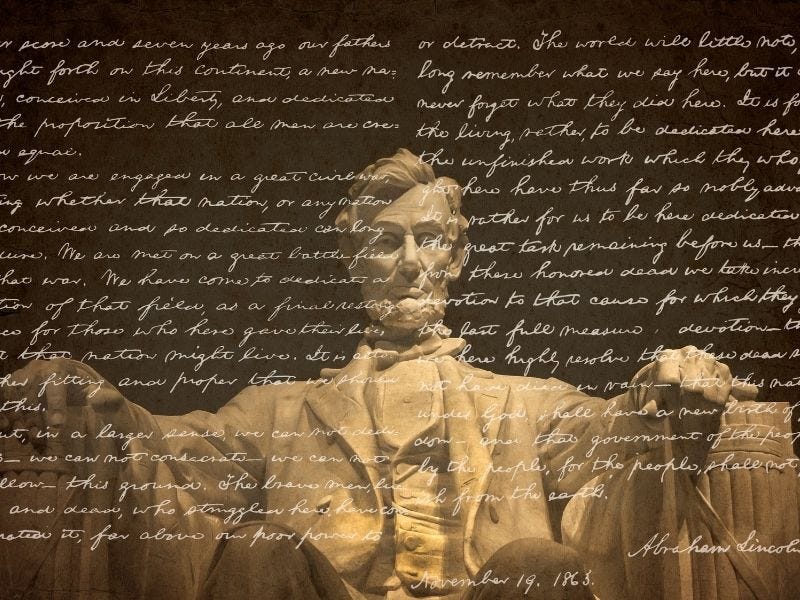 r score and seven years ago our fathers
ught forth on this continent, a new na-
, conceived in Liberty, and dedicated
the proposition that all men are cre-
d equal.
ow we are engaged in a great civil war,
ing whether that nation, or any nation
conceived and so dedicated can long
dure. We are met on a great battle-field
that war. We have come to dedicate a
tion of that field, as a final resting
ce for those who here gave their lives
t that nation might live. It is alto-
her fitting and proper that we should
this.
ut, in a larger sense, we can not dedi-
— we can not consecrate — we can not
llow — this ground. The brave men, liv
and dead, who struggled here, have con
rated it, far above our poor power to
or detract. The world will little note,
long remember what we say here, but it c
never forget what they did here. It is fo
the living, rather, to be dedicated here
the unfinished work which they who
ght here have thus far so nobly adva
It is rather for us to be here dedicated
the great task remaining before us — th
from these honored dead we take incre
devotion to that cause for which they
the last full measure devotion — th
we here highly resolve that these dead s
not have died in vain — that this nat
under God, shall have a new birth of
dom — and that government of the peop
by the people, for the people, shall not
ish from the earth.
Abraham Lincoln
November 19, 1863.